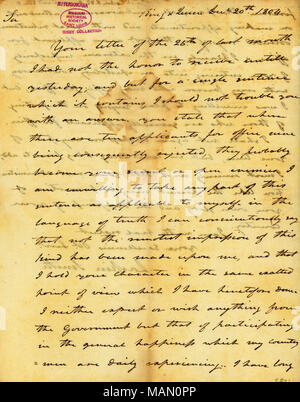 King & Queen Dec 20th, 1804
Sir
JEFFERSONIAN
HISTORICAL
SOCIETY
BIXBY COLLECTION
Your letter of the 28th of last month
I had not the honor to receive untill
yesterday, and but for a single sentence
which it contains I should not trouble you
with an answer. you state that where
there are ten applicants for office nine
being consequently rejected, they probably
become your enemies. Even enemies I
am unwilling to take any part of this
sentence as applicable to myself. in the
language of truth I can conscientiously say
that not the remotest impression of this
kind has been made upon me, and that
I hold your character in the same exalted
point of view which I have heretofore done.
I neither expect or wish any thing from
the Government but that of participating
in the general happiness which my country
men are daily experiencing. I have long
alamy
Image ID: MAN0PP
www.alamy.com